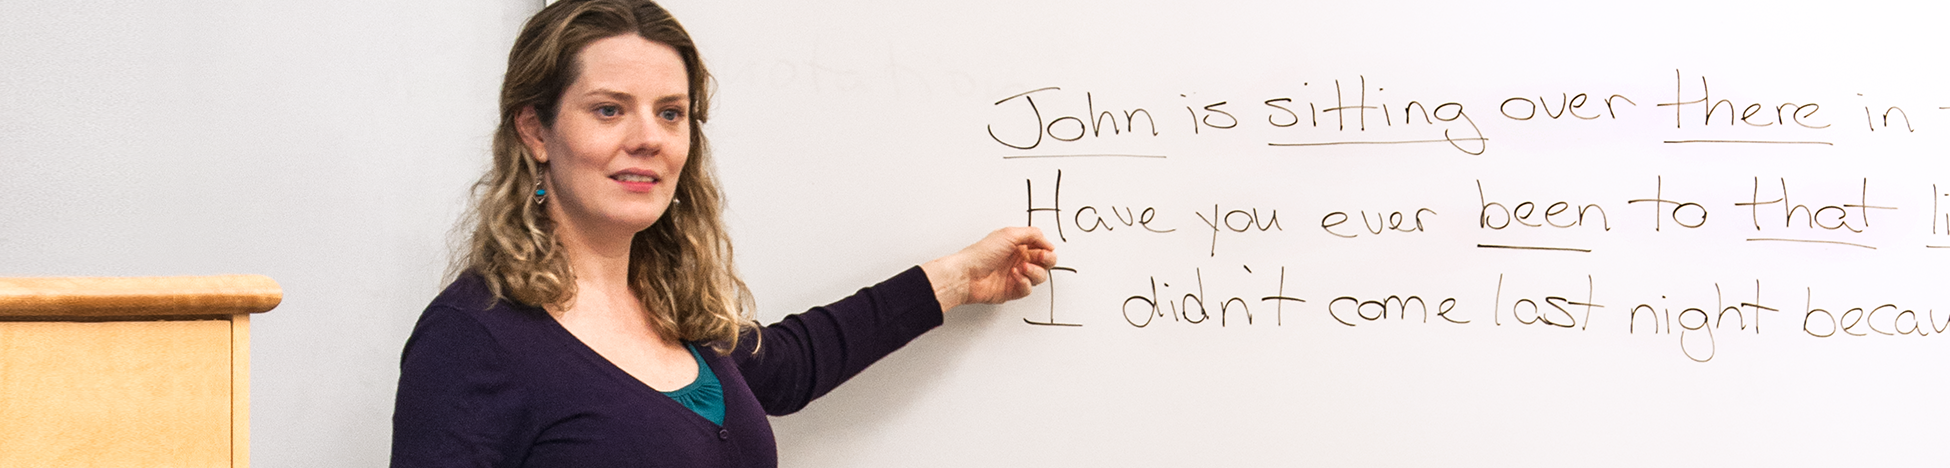 John is sitting over there in
Have you ever been to that
I didn't come last night